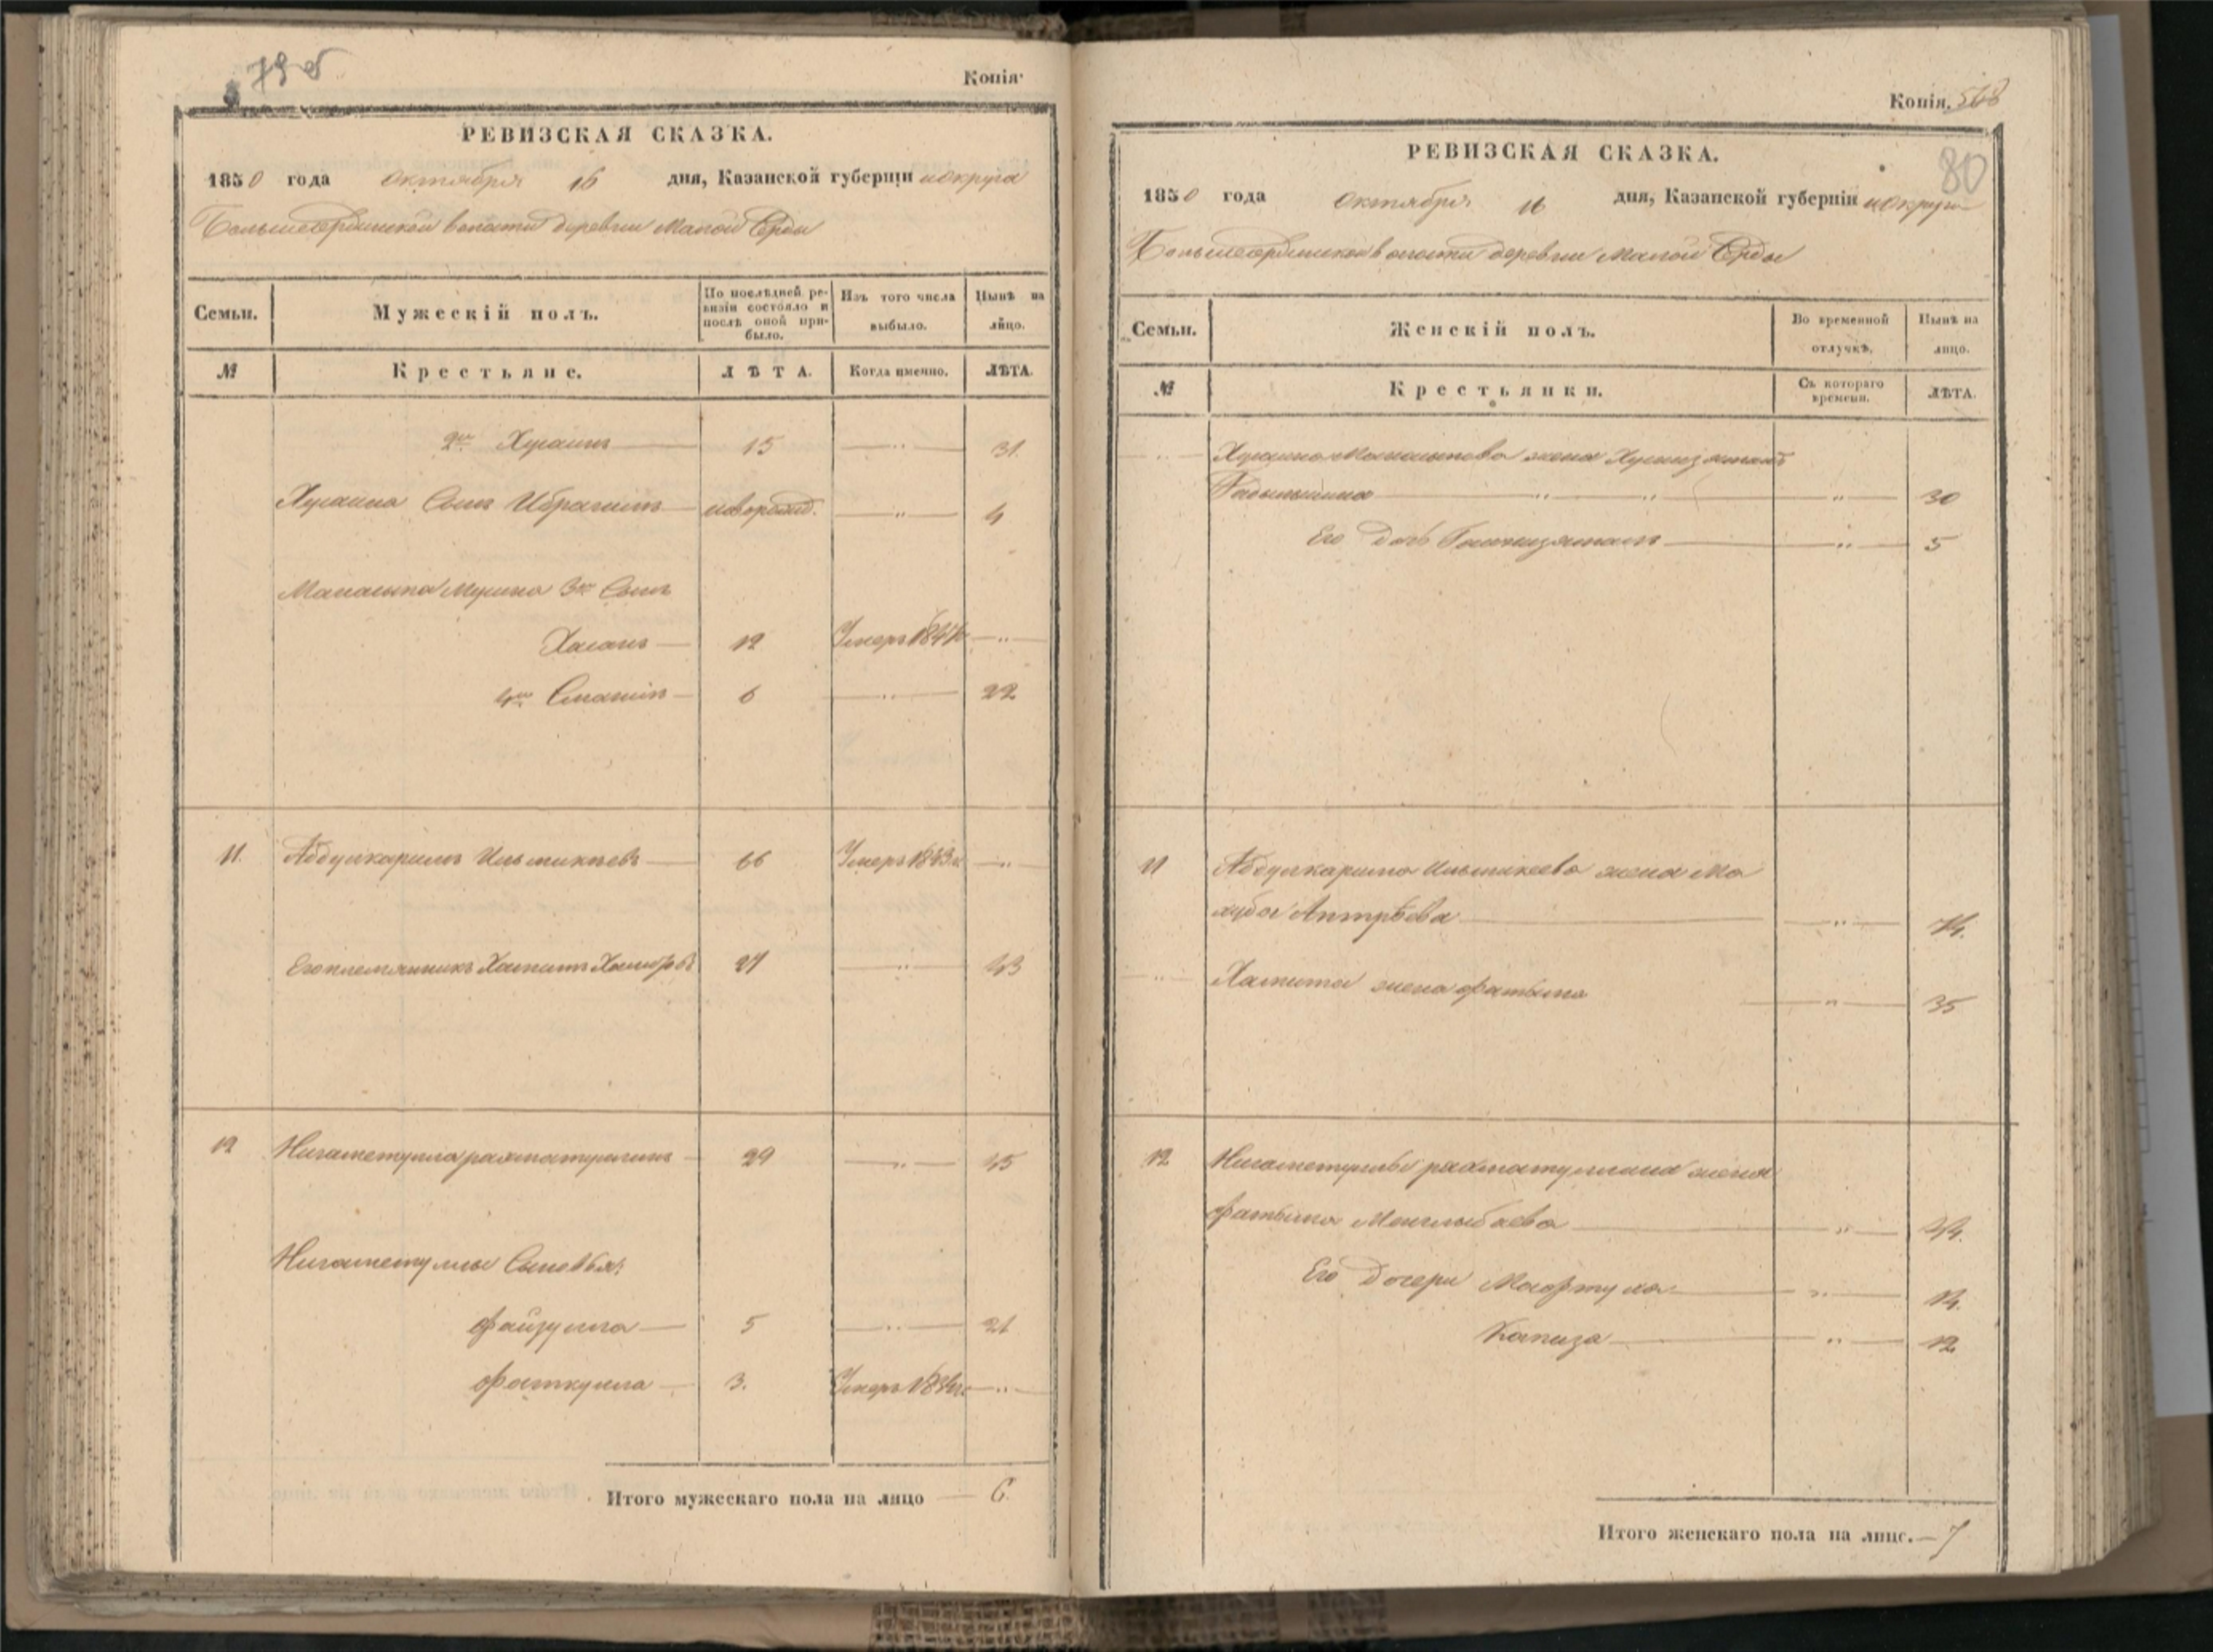 79 об
Копія.
РЕВИЗСКАЯ СКАЗКА.
1850 года октября 16 дня, Казанской губерніи и округа
Большеердинской волости деревни Малой Ерды
Семьи.
Мужескій полъ.
По послѣдней ревизіи состояло и послѣ оной прибыло.
Изъ того числа выбыло.
Нынѣ на лицо.
№
Крестьяне.
ЛѢТА.
Когда именно.
ЛѢТА.
2й Хусаинъ 15 — 31.
Хусаина Сынъ Ибрагимъ новорожд. — 4
Мусина 3й Сынъ
Хасанъ — 12 Умеръ
4й 6 — 22
11. Абдулкаримъ Ильтикѣевъ 66 Умеръ 1843 г.
Его племянникъ Хамитъ 27 — 43
12 Нигаметулла рахматуллинъ 29 — 45
Нигаметуллы Сыновья:
файзулла 5 — 21
фаткулла 3. Умеръ
Итого мужескаго пола на лицо — 6.
Копія. 568
80
РЕВИЗСКАЯ СКАЗКА.
1850 года октября 16 дня, Казанской губерніи и округа
Большеердинской волости деревни Малой Ерды
Семьи.
Женскій полъ.
Во временной отлучкѣ.
Нынѣ на лицо.
№
Крестьянки.
Съ котораго времени.
ЛѢТА.
Хусаина жена
30
Его дочь — 5
11 Абдулкарима Ильтикеева жена Ма
хуба 74.
Хамита жена фатыма — 35
12 Нигаметуллы рахматуллина жена
фатыма Менглыбаева — 44.
Его дочери 14.
12
Итого женскаго пола на лицо. — 7